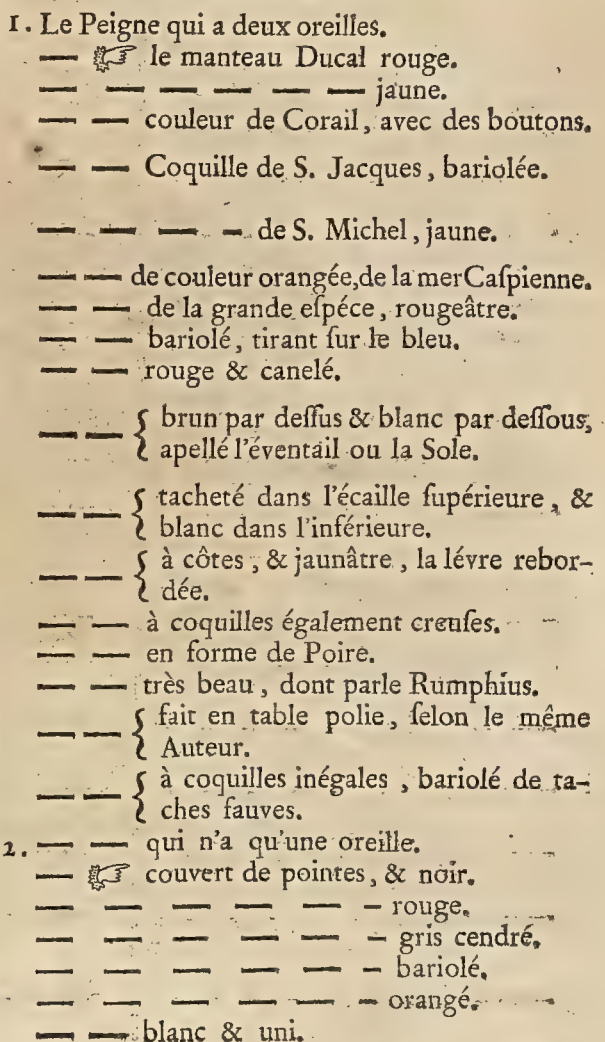 1. Le Peigne qui a deux oreilles.
— ☞ le manteau Ducal rouge.
— — — — — — jaune.
— — couleur de Corail, avec des boutons.
— — Coquille de S. Jacques, bariolée.
— — — — de S. Michel, jaune.
— — de couleur orangée, de la mer Caſpienne.
— — de la grande eſpéce, rougeâtre.
— — bariolé, tirant ſur le bleu.
— — rouge & canelé.
— — { brun par deſſus & blanc par deſſous,
apellé l'éventail ou la Sole.
— — { tacheté dans l'écaille ſupérieure, &
blanc dans l'inférieure.
— — { à côtes, & jaunâtre, la lévre rebor-
dée.
— — à coquilles également creuſes.
— — en forme de Poire.
— — très beau, dont parle Rumphius.
— — { fait en table polie, ſelon le même
Auteur.
— — { à coquilles inégales, bariolé de ta-
ches fauves.
2. — — qui n'a qu'une oreille.
— ☞ couvert de pointes, & noir.
— — — — — — rouge.
— — — — — — gris cendré.
— — — — — — bariolé.
— — — — — — orangé.
— — blanc & uni.